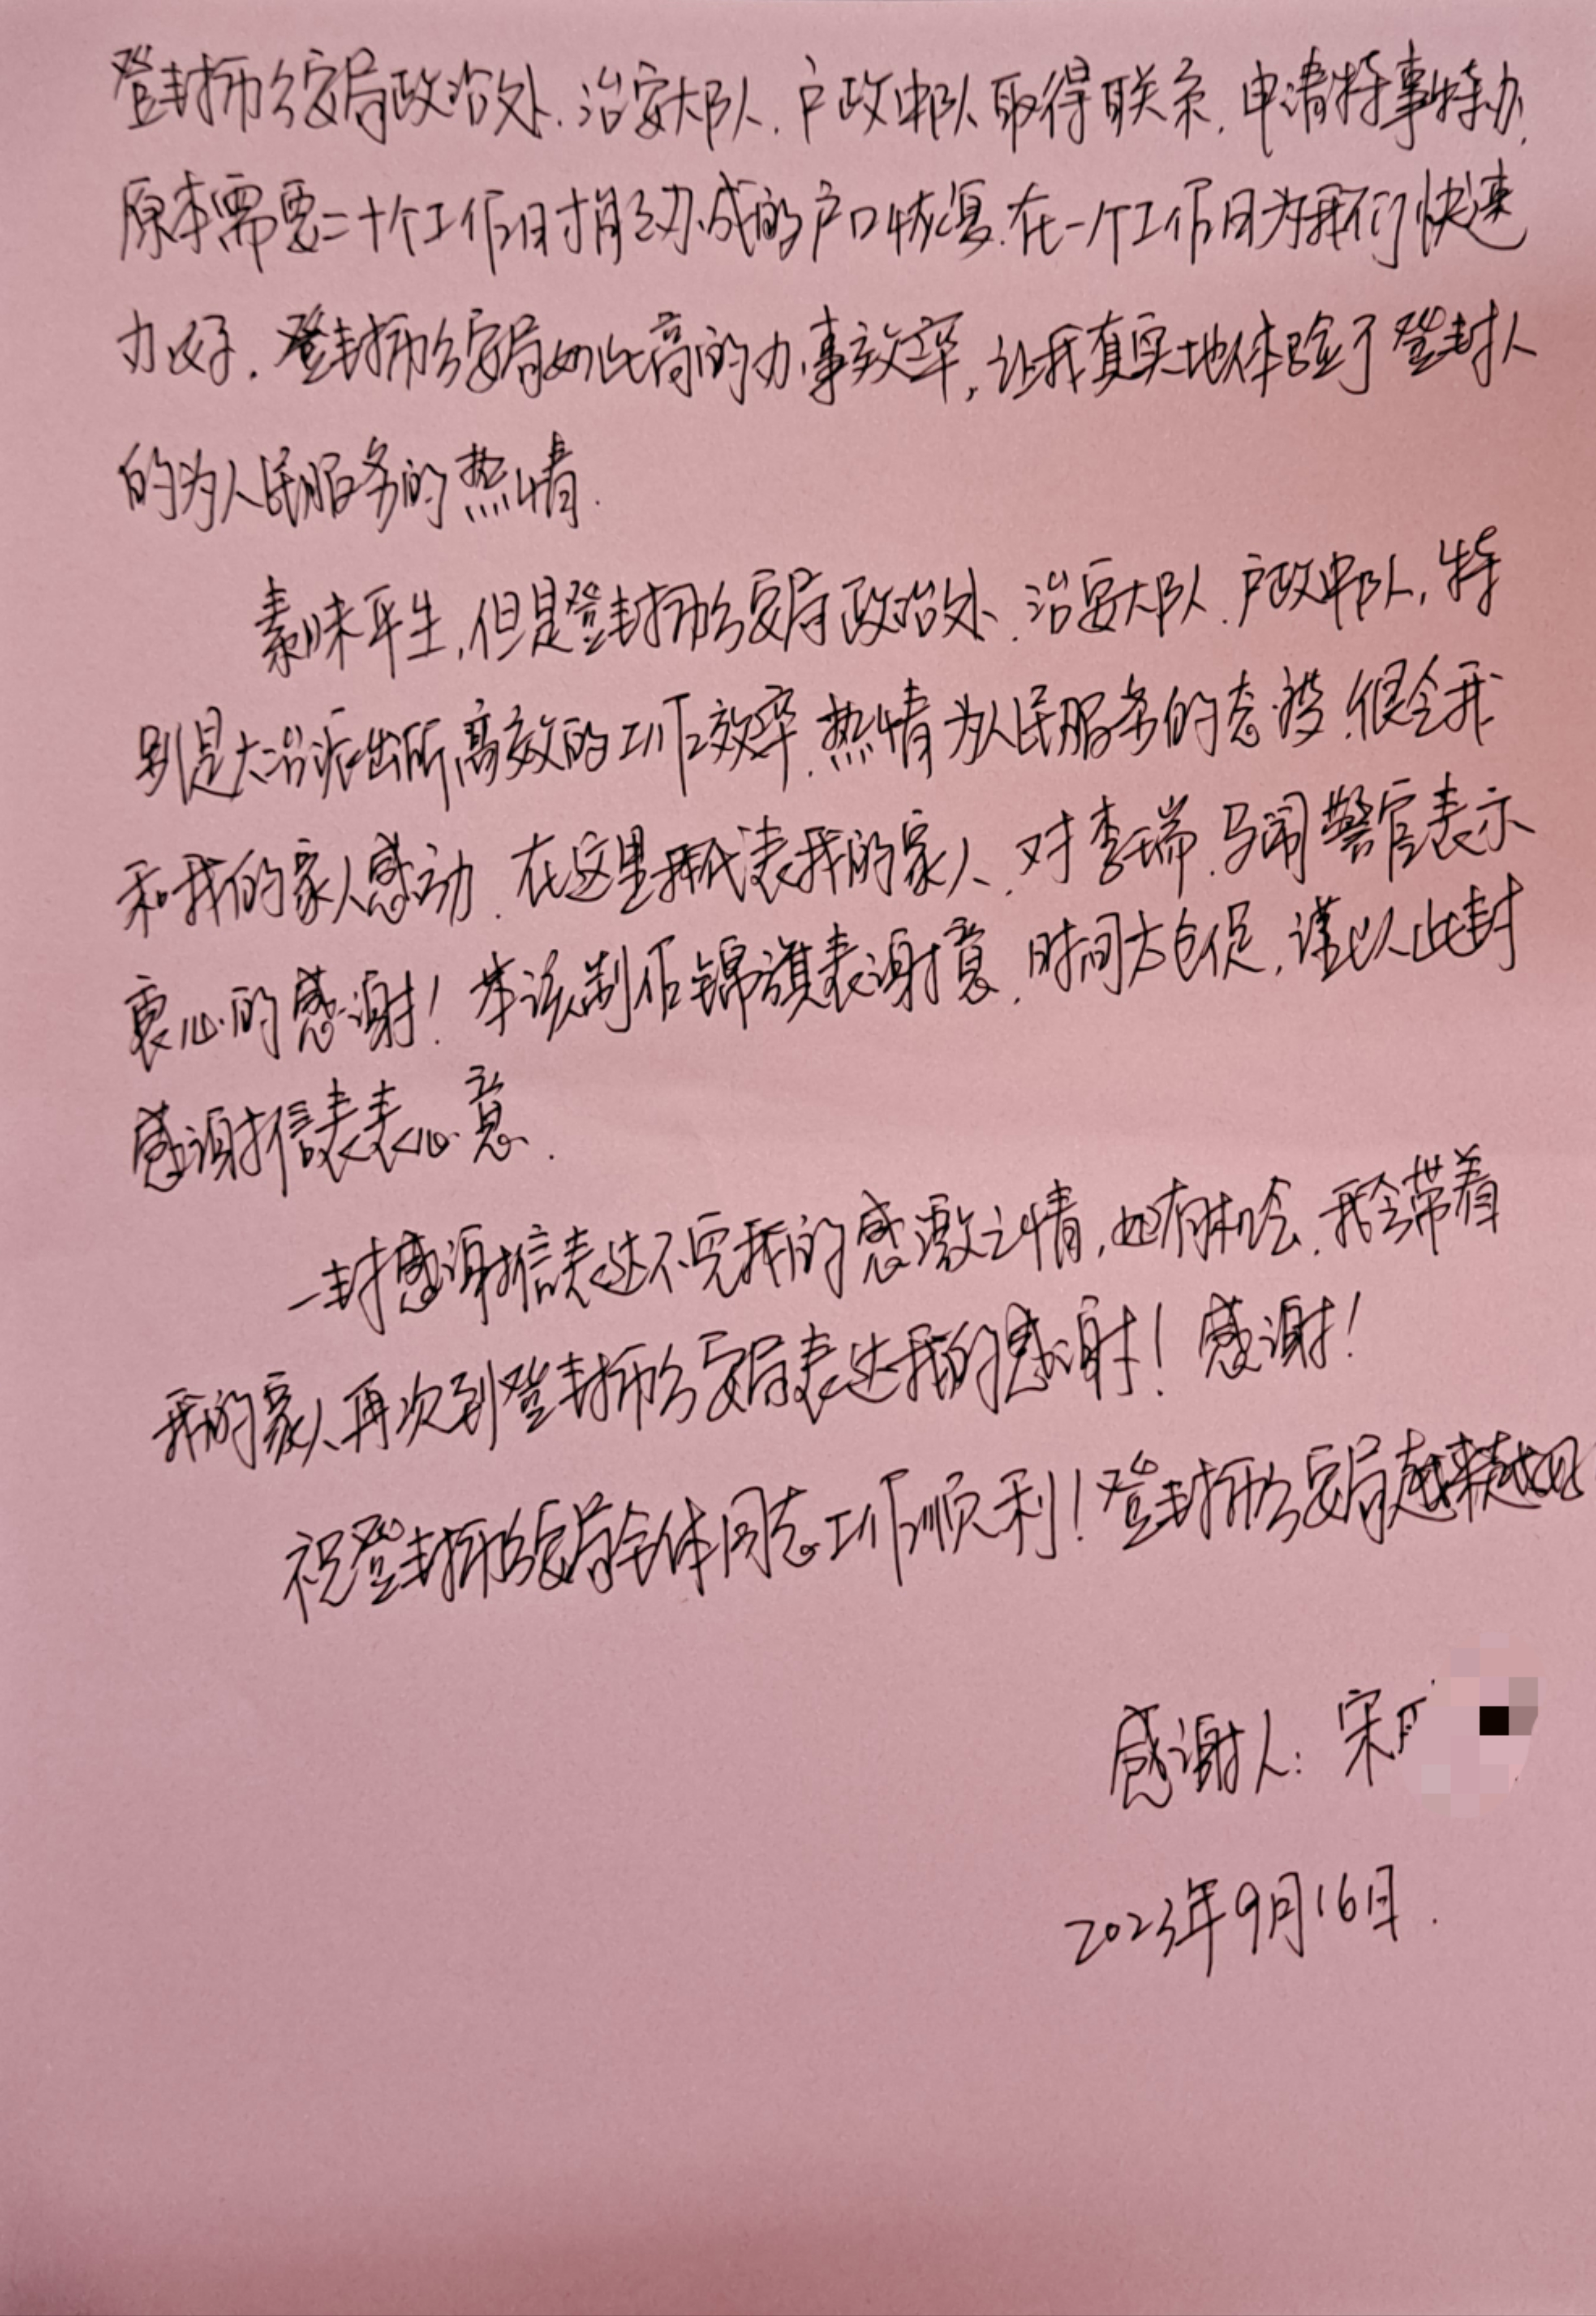 登封市公安局政治处、治安大队、户政中队取得联系，申请特事特办，
原本需要二十个工作日才能办成的户口恢复，在一个工作日为我们快速
办好。登封市公安局如此高的办事效率，让我真实地体验了登封人
的为人民服务的热情.
素昧平生，但是登封市公安局政治处、治安大队、户政中队，特
别是大冶派出所高效的工作效率，热情为人民服务的态度，很令我
和我的家人感动，在这里我代表我的家人，对李瑞、马闯警官表示
衷心的感谢！本该制作锦旗表谢意，时间太仓促，谨以此封
感谢信表表心意.
一封感谢信表达不完我的感激之情，如有机会，我会带着
我的家人再次到登封市公安局表达我的感谢！感谢！
祝登封市公安局全体同志工作顺利！登封市公安局越来越
感谢人：宋
2023年9月16日.